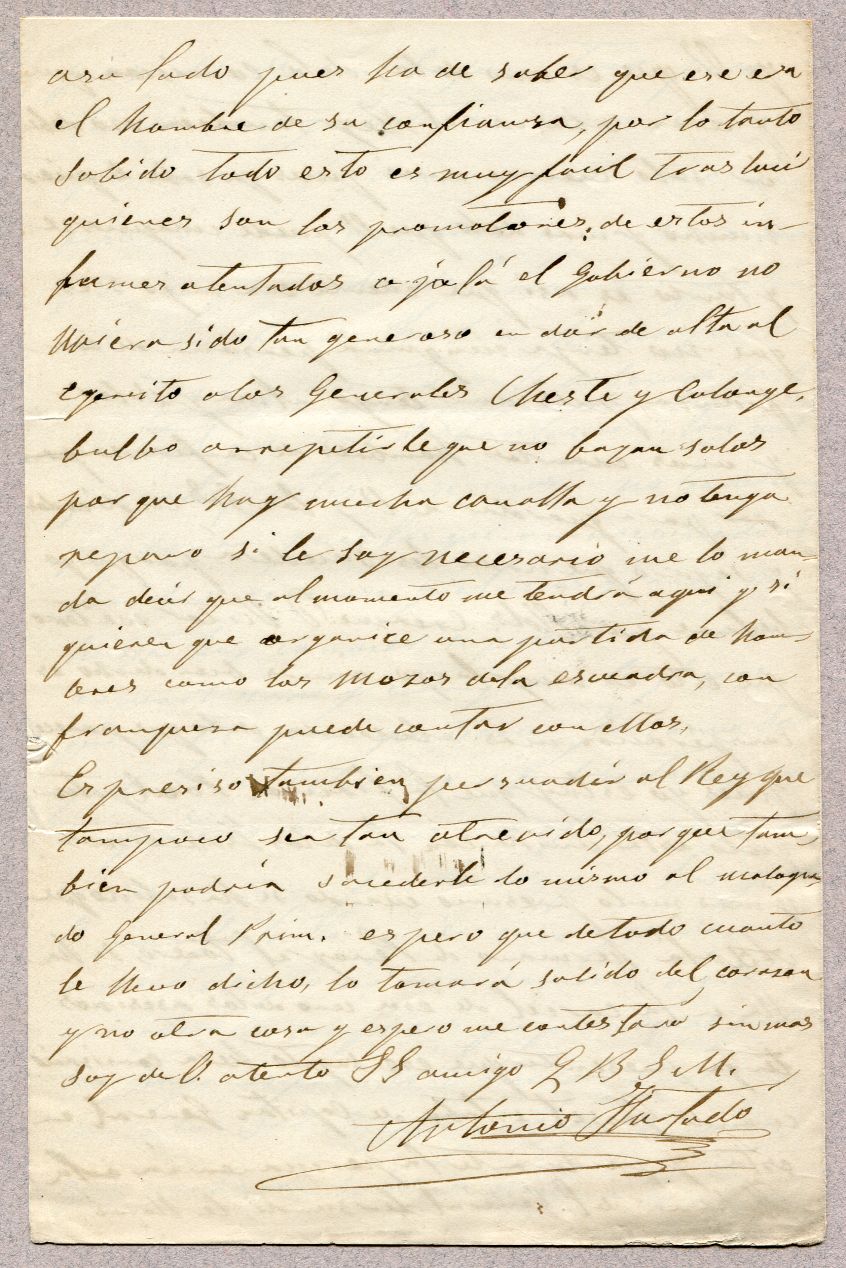 asu lado pues ha de saber que ese era
el hombre de su confianza, por lo tanto
sabido todo esto es muy facil traslucir
quienes son los promotores, de estos in-
fames atentados ojalá el Gobierno no
hubiera sido tan generoso en dar de alta al
egercito alos Generales Cheste y Calonge,
buelbo arrepetirle que no bayan solos
por que hay mucha canalla y no tenga
reparo si le soy necesario me lo man-
da decir que al momento me tendrá aqui y si
quieren que organice una partida de hom-
bres como los Mozos dela escuadra, con
franqueza puede contar con ellos,
Es presiso tambien persuadir al Rey que
tampoco sea tan atrevido, porque tam-
bien podría sucederle lo mismo al malogra-
do General Prim. espero que detodo cuanto
le llevo dicho, lo tomará salido del corazon
y no otra cosa y espero me contestará sin mas
soy de V. atento SS amigo Q B S M.
Antonio Hurtado